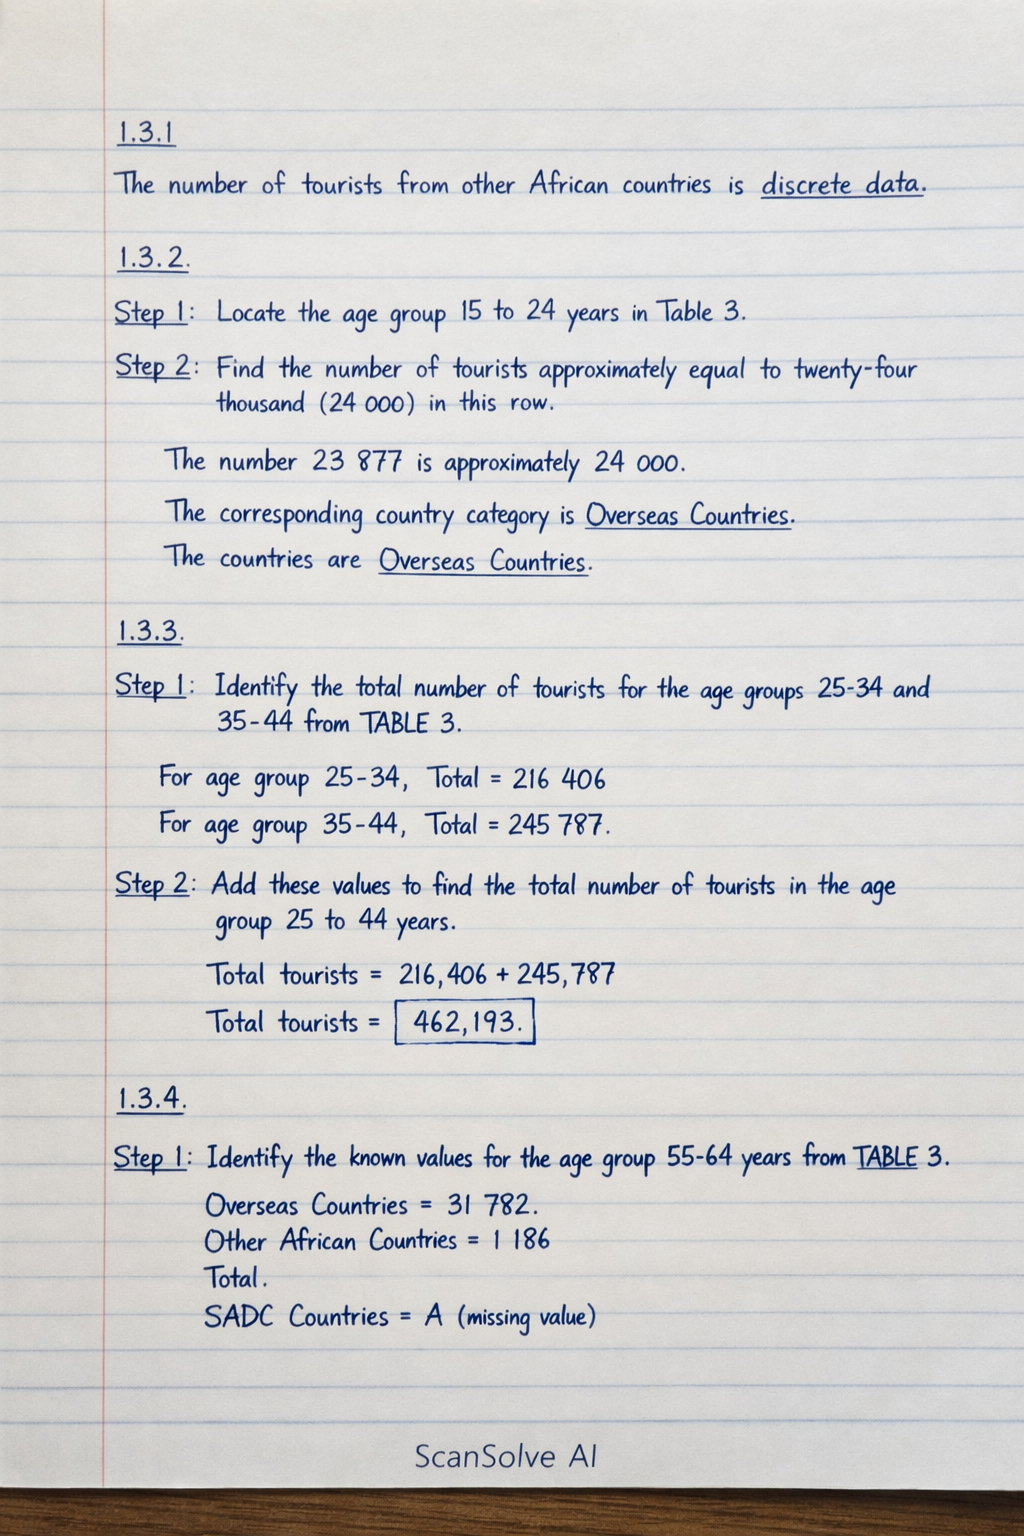 1.3.1
The number of tourists from other African countries is discrete data.
1.3.2.
Step 1: Locate the age group 15 to 24 years in Table 3.
Step 2: Find the number of tourists approximately equal to twenty-four
thousand (24 000) in this row.
The number 23 877 is approximately 24 000.
The corresponding country category is Overseas Countries.
The countries are Overseas Countries.
1.3.3.
Step 1: Identify the total number of tourists for the age groups 25-34 and
35-44 from TABLE 3.
For age group 25-34, Total = 216 406
For age group 35-44, Total = 245 787.
Step 2: Add these values to find the total number of tourists in the age
group 25 to 44 years.
Total tourists = 216,406 + 245,787
Total tourists = 462,193.
1.3.4.
Step 1: Identify the known values for the age group 55-64 years from TABLE 3.
Overseas Countries = 31 782.
Other African Countries = 1 186
Total.
SADC Countries = A (missing value)
ScanSolve AI